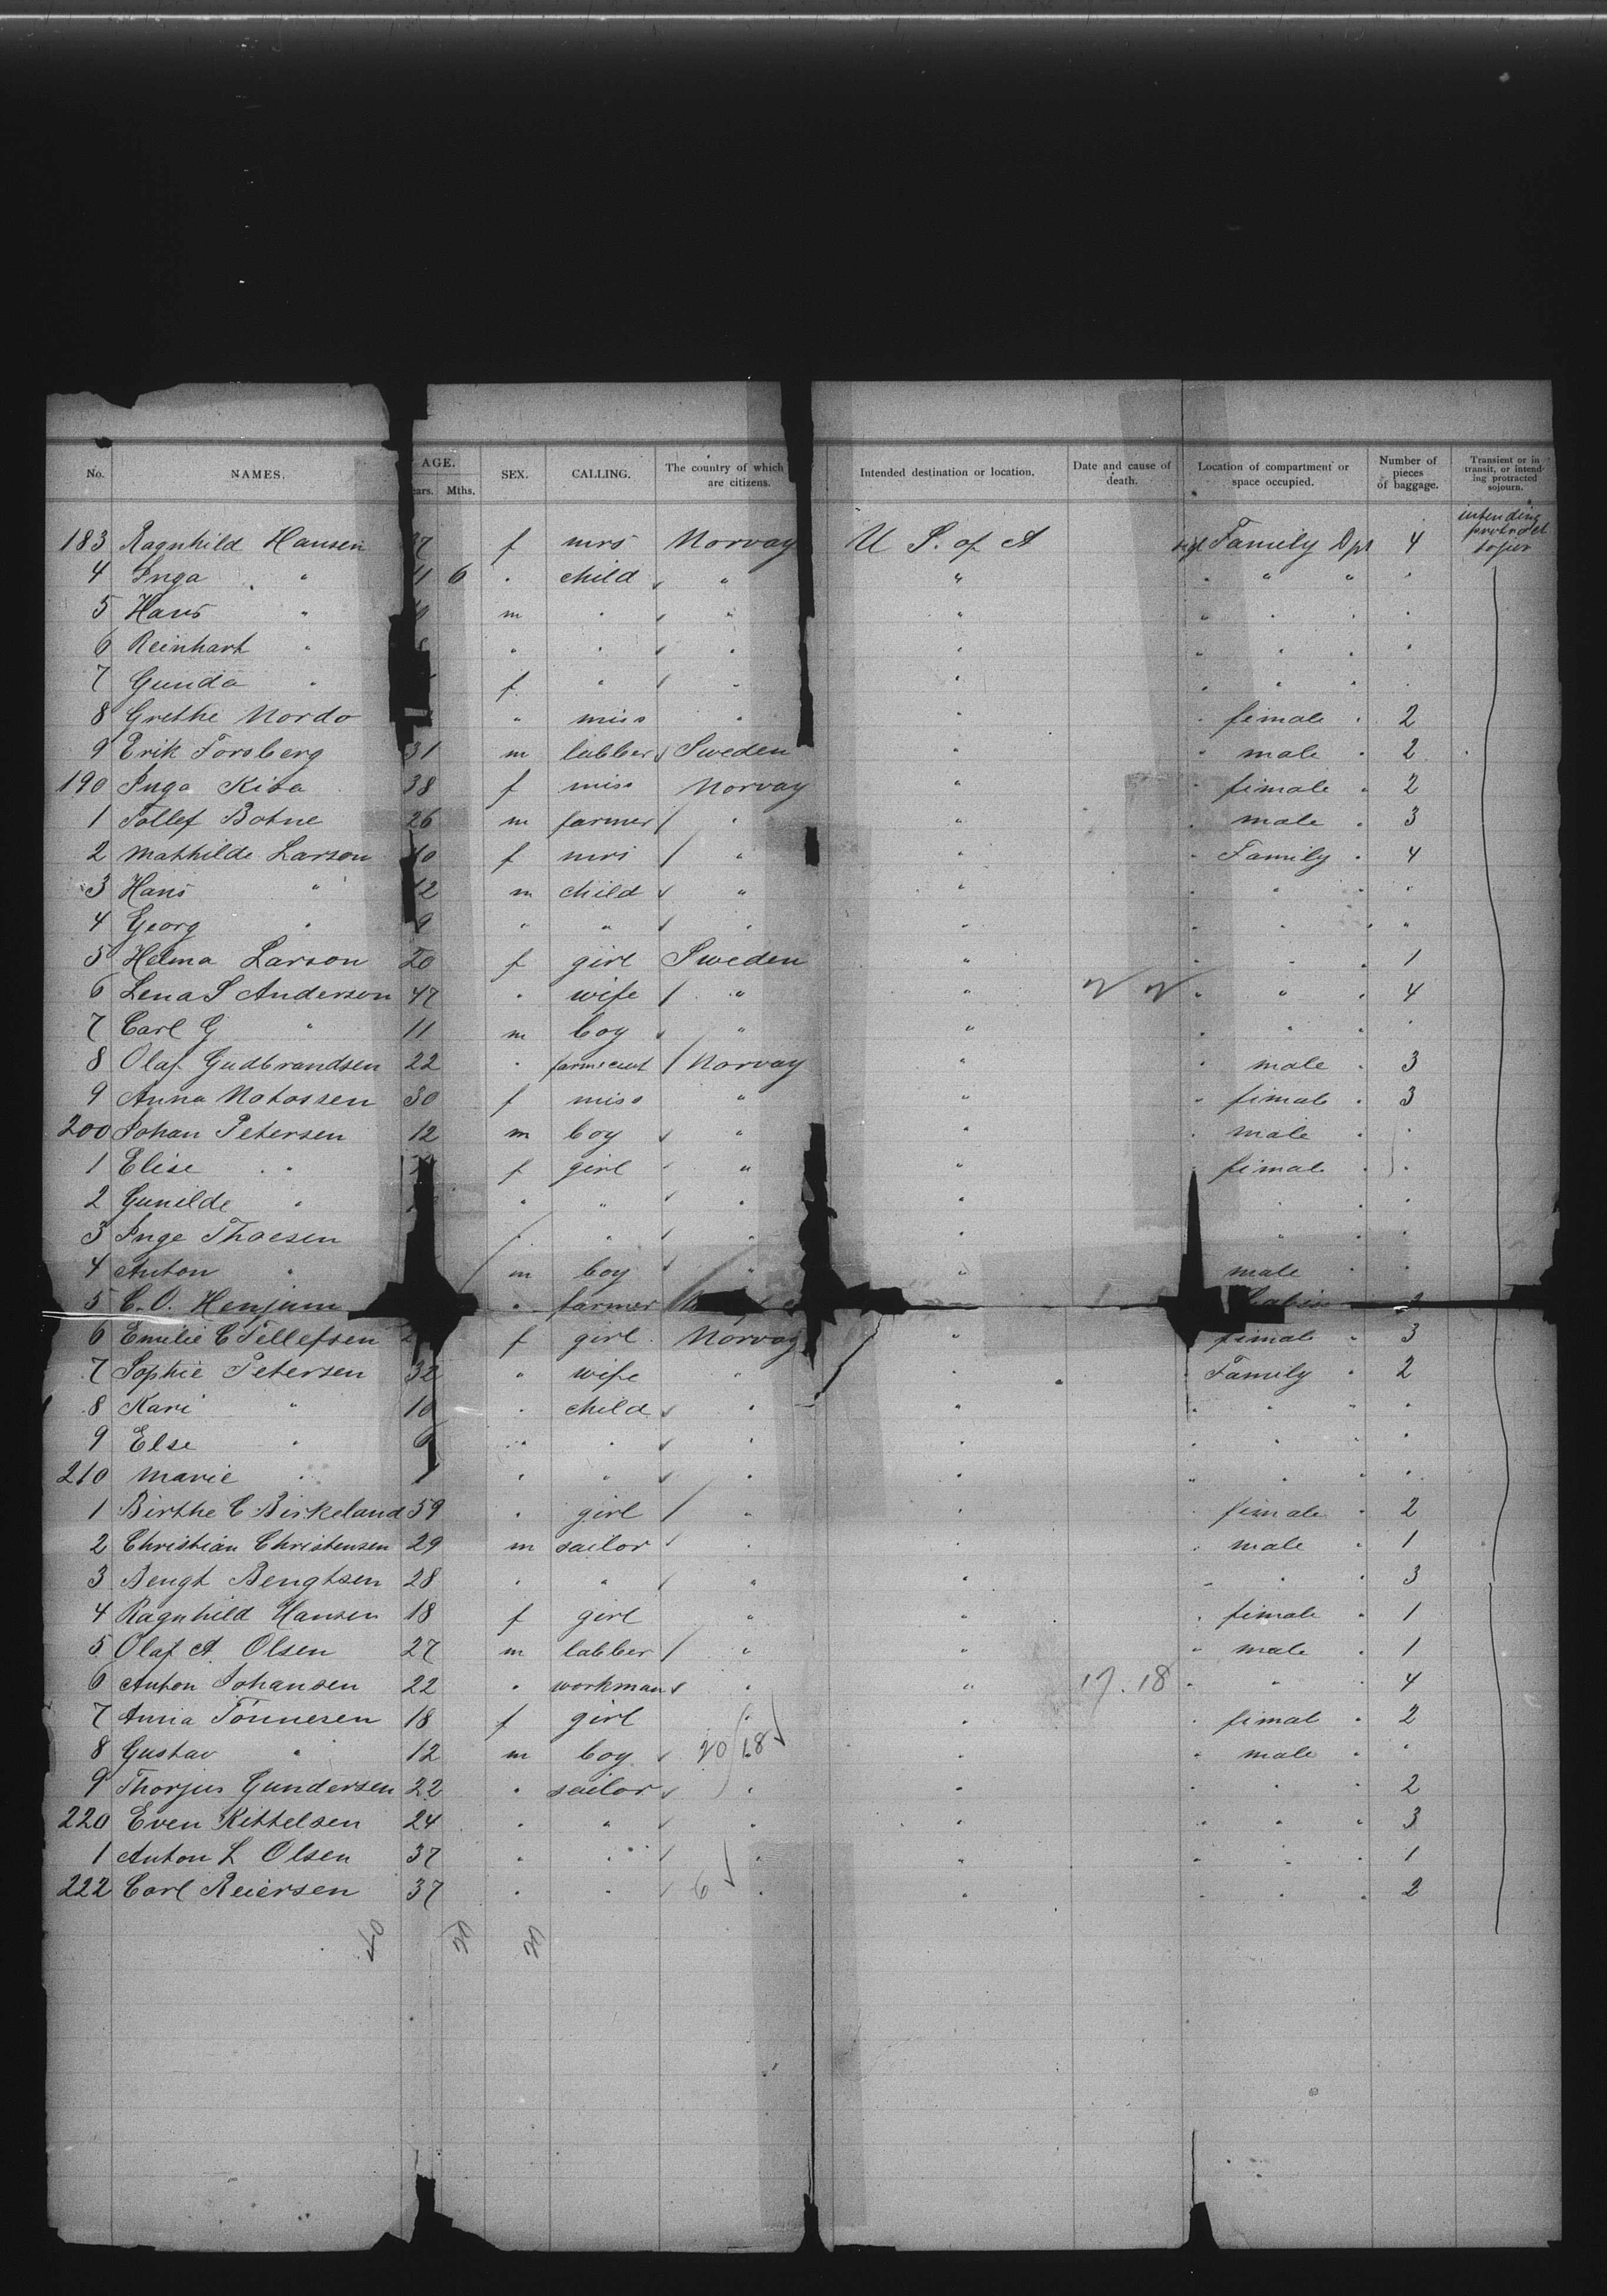 No. NAMES. AGE. SEX. CALLING. The country of which are citizens. Intended destination or location. Date and cause of death. Location of compartment or space occupied. Number of pieces of baggage. Transient or in transit, or intending protracted sojourn.
ears. Mths.
183 Ragnhild Hansen 37 f mrs Norvay U S. of A Family Dpt 4 intending
4 Inga " 11 6 " child " " " " " "
5 Hans " m " " " " " " "
6 Reinhart " " " " " " " " "
7 Gunda " f " " " " " " "
8 Grethe Nordo " miss " " " fimale " 2
9 Erik Forsberg 31 m labber Sweden " " male " 2
190 Inga Kisa 38 f miss Norvay " " fimale " 2
1 Tollef Botne 26 m farmer " " " male " 3
2 Mathilde Larson 40 f mrs " " " Family " 4
3 Hans " 12 m child " " " " " "
4 Georg " 9 " " " " " " " "
5 Helma Larson 20 f girl Sweden " " " " 1
6 Lena S Anderson 47 " wife " " " " " 4
7 Carl G " 11 m boy " " " " " "
8 Olaf Gudbrandsen 22 " Norvay " " male " 3
9 Anna Notossen 30 f miss " " " fimale " 3
200 Johan Petersen 12 m boy " " " male " "
1 Elise " f girl " " " fimale " "
2 Gunilde " " " " " " " "
3 Inge Thoesen " " " " " " "
4 Anton " m boy " " male " "
5 C. O. Henjum " farmer "
6 Emilie C Tellefsen f girl Norvay " fimale " 3
7 Sophie Petersen 32 " wife " " " Family " 2
8 Kari " 10 " child " " " " " "
9 Else " " " " " " " " "
210 Marie " " " " " " " " "
1 Birthe C Birkeland 59 " girl " " " fimale " 2
2 Christian Christensen 29 m sailor " " " male " 1
3 Bengt Bengtsen 28 " " " " " " " 3
4 Ragnhild Hansen 18 f girl " " " fimale " 1
5 Olaf A. Olsen 27 m labber " " " male " 1
6 Anton Johansen 22 " workman " " 17. 18 " " " 4
7 Anna Tönnesen 18 f girl " " " fimale " 2
8 Gustav " 12 m boy 20 18 " " male " "
9 Thorjus Gundersen 22 " sailor " " " " " 2
220 Even Kittelsen 24 " " " " " " " 3
1 Anton L Olsen 37 " " " " " " " 1
222 Carl Reiersen 37 " " 6 " " " " " 2